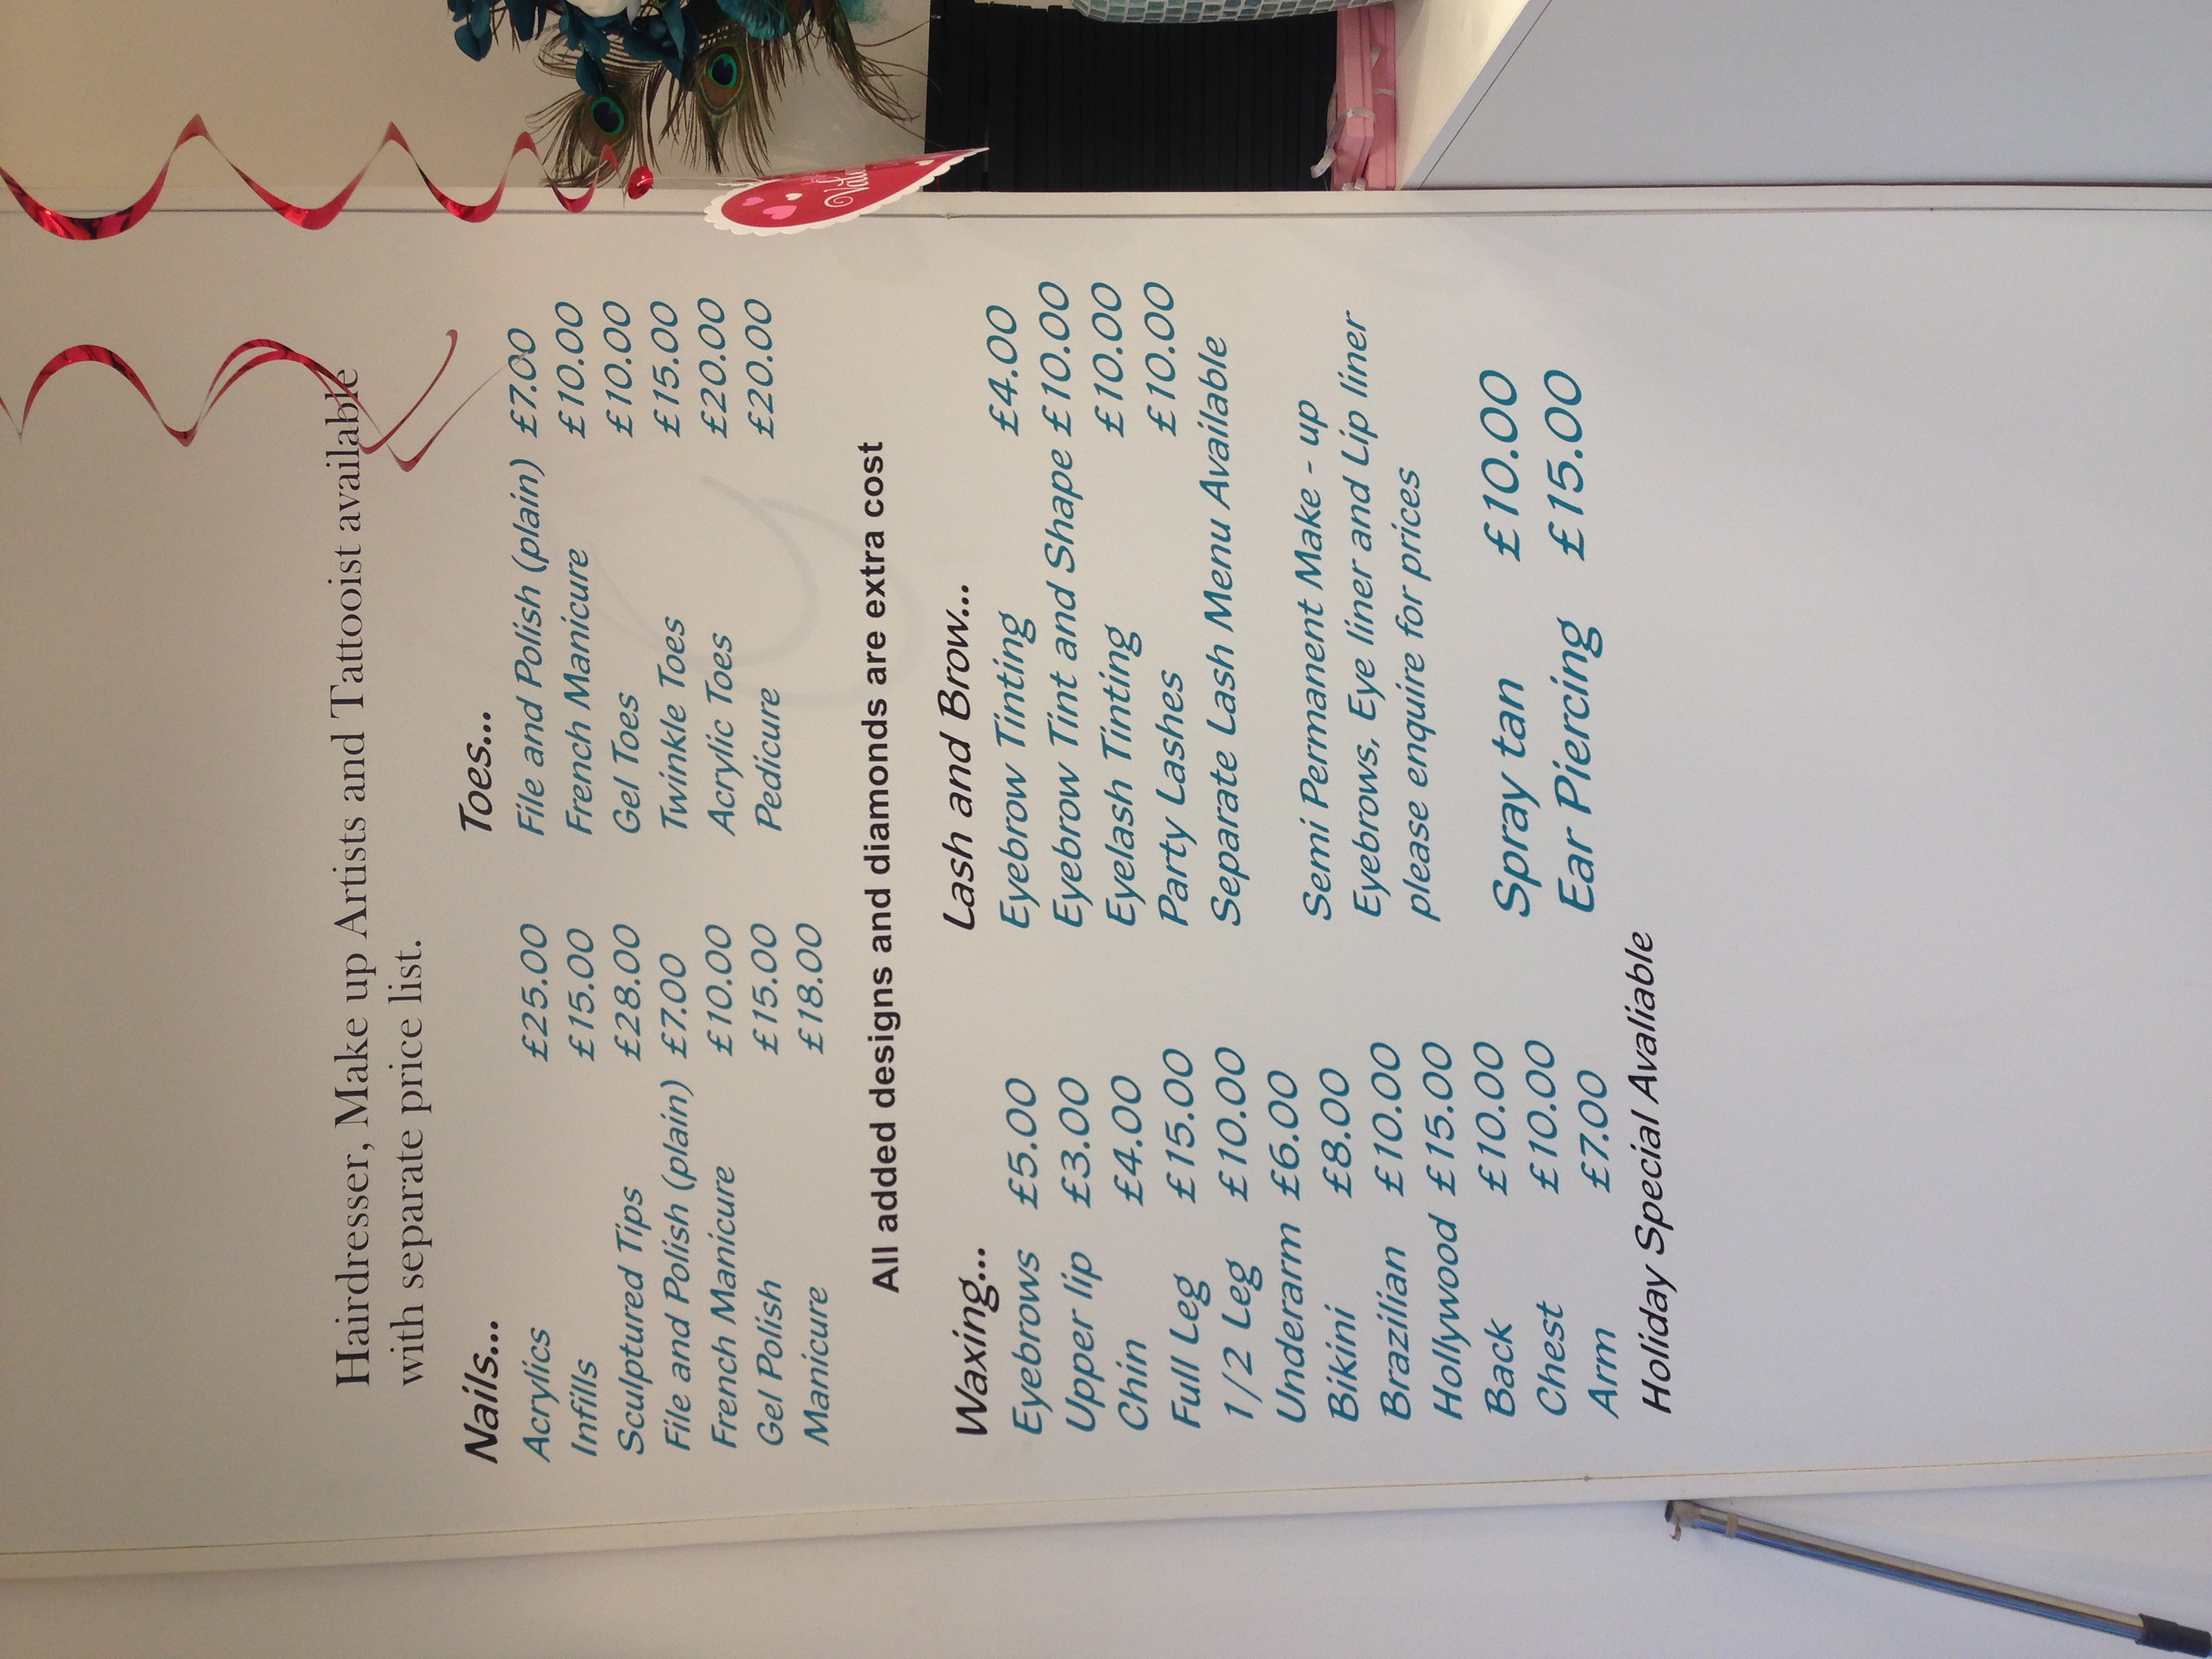 Hairdresser, Make up Artists and Tattooist available
with separate price list.
Nails...
Acrylics £25.00
Infills £15.00
Sculptured Tips £28.00
File and Polish (plain) £7.00
French Manicure £10.00
Gel Polish £15.00
Manicure £18.00
Toes...
File and Polish (plain) £7.00
French Manicure £10.00
Gel Toes £10.00
Twinkle Toes £15.00
Acrylic Toes £20.00
Pedicure £20.00
All added designs and diamonds are extra cost
Waxing...
Eyebrows £5.00
Upper lip £3.00
Chin £4.00
Full Leg £15.00
1/2 Leg £10.00
Underarm £6.00
Bikini £8.00
Brazilian £10.00
Hollywood £15.00
Back £10.00
Chest £10.00
Arm £7.00
Holiday Special Avaliable
Lash and Brow...
Eyebrow Tinting £4.00
Eyebrow Tint and Shape £10.00
Eyelash Tinting £10.00
Party Lashes £10.00
Separate Lash Menu Available
Semi Permanent Make - up
Eyebrows, Eye liner and Lip liner
please enquire for prices
Spray tan £10.00
Ear Piercing £15.00